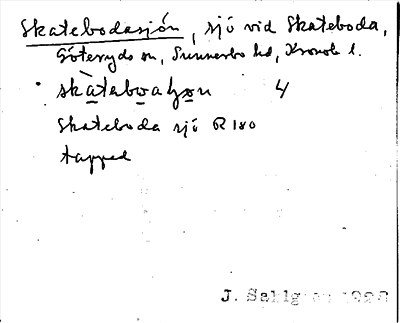 Skatebodasjön, sjö vid Skateboda,
Göteryds sn, Sunnerbo hd, Kronob l.
4
Skateboda sjö R 180
tappad
J. Sahlg